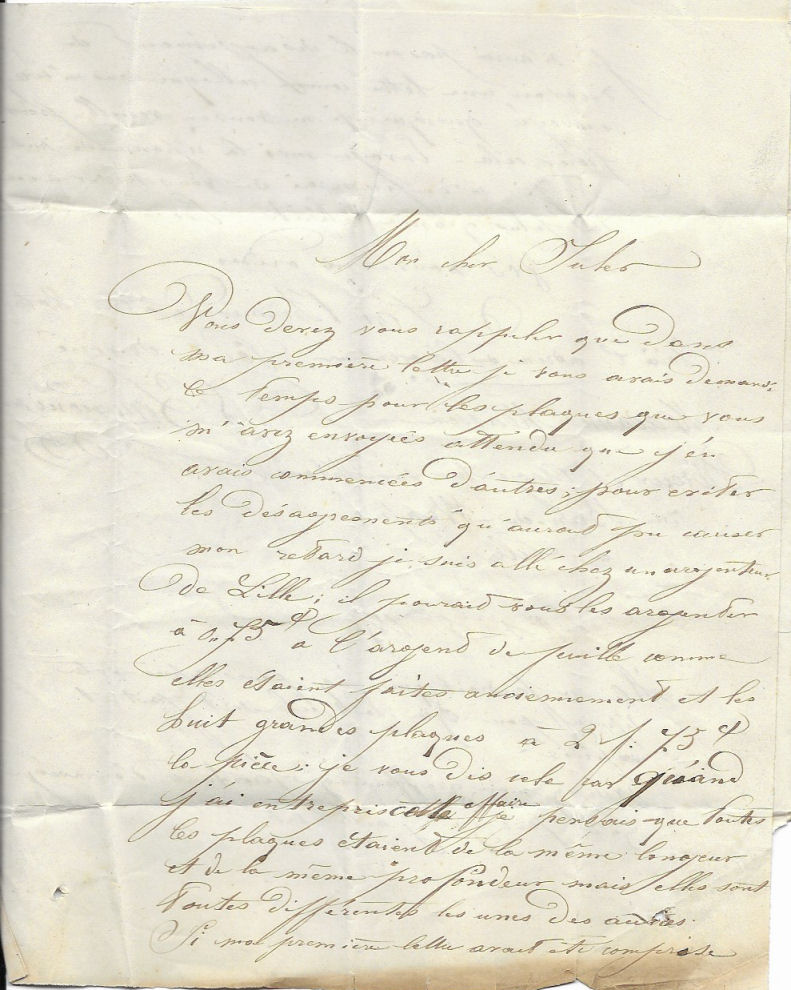 Mon cher Jules
Vous devez vous rappeler que dans
ma première lettre je vous avais demandé
le temps pour les plaques que vous
m'avez envoyées attendu que j'en
avais commencées d'autres; pour eviter
les désagrements qu'aurait pu causer
mon retard je suis allé chez un argenteur
de Lille; il pourait vous les argenter
à 0.75 c à l'argend de feuille comme
elles étaient faites anciennement et les
huit grandes plaques à 2 f. 75 c
la pièce: je vous dis cela car quand
j'ai entrepris cette affaire je pensais que toutes
les plaques étaient de la même longeur
et de la même profondeur mais elles sont
toutes differentes les unes des autres.
Si ma première lettre avait été comprise